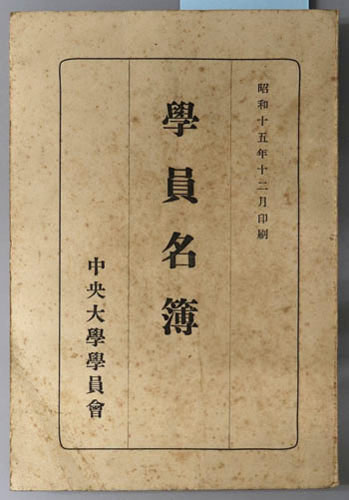 昭和十五年十二月印刷
學員名簿
中央大學學員會